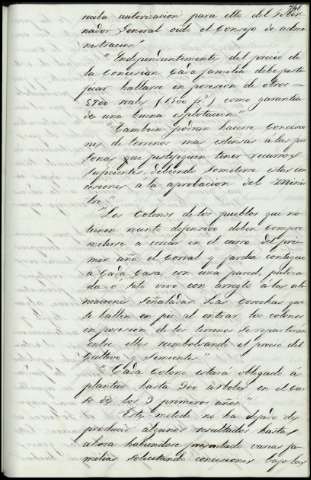 autorizacion para ello del Gober
nador General oido el Consejo de admi
nistracion"
"Independientemente del precio de
la Concesion Cada familia debe justi
ficar hallarse en posesion de otros
reales como garantia
de una buena explotacion"
"Tambien podran hacerse Concesio
nes de terrenos mas estensas á las per
sonas que justifiquen tener recursos
suficientes, debiendo someterse estas con
cesiones á la aprobacion del Minis
tro"
"Los Colonos de los pueblos que no
tienen defensivo deben compro
meterse a en el curso del pri
mer año el Corral y jardin contiguo
á Cada Casa con una pared,
da o seto vivo con arreglo á las
señaladas. Las Cosechas que
se hallen en pie al entrar los colonos
en posesion de los terrenos se repartiran
entre ellos reembolsando el precio del
Cultivo y simiente"
"Cada Colono estará obligado á
plantar hasta 200 arboles en el Cur
so de los 3 primeros años"
"Este metodo no ha dejado de
producir algunos resultados hasta
ahora habiendose presentado varias fa
milias solicitando concesiones bajo las